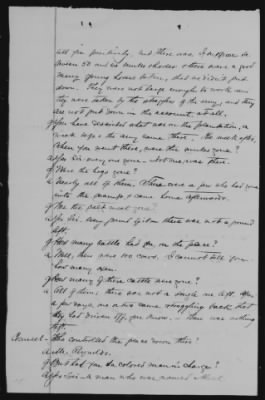 all fine positively, and there was I suppose be
tween 50 and 60 mules besides others were a good
many young horses taken, that we didn't put
down. They were not large enough to work and
they were taken by the stragglers of the army, and they
are not put down in the assessment at all.
Q You have described what was on the plantation, a
week before the army came there. The week after,
when you went there, were the mules gone?
A Yes Sir every one gone - not one was there.
Q Were the hogs gone?
A Nearly all of them. There was a few who had gone
into the swamps & came home afterwards.
Q Was the meat gone?
A Yes Sir. Every point I given there was not a pound
left.
Q How many cattle had you on the place?
A Well, there were 100 cows. I cannot tell you
how many oxen.
Q How many of these cattle were gone?
A All of them. There was not a single one left. After
a few days one or two came straggling back, that
they had driven off, you know. - There was nothing
left.
Who controlled the place down there?
A Mr.
Q But had you a colored man in charge?
A Yes Sir. A man who was named